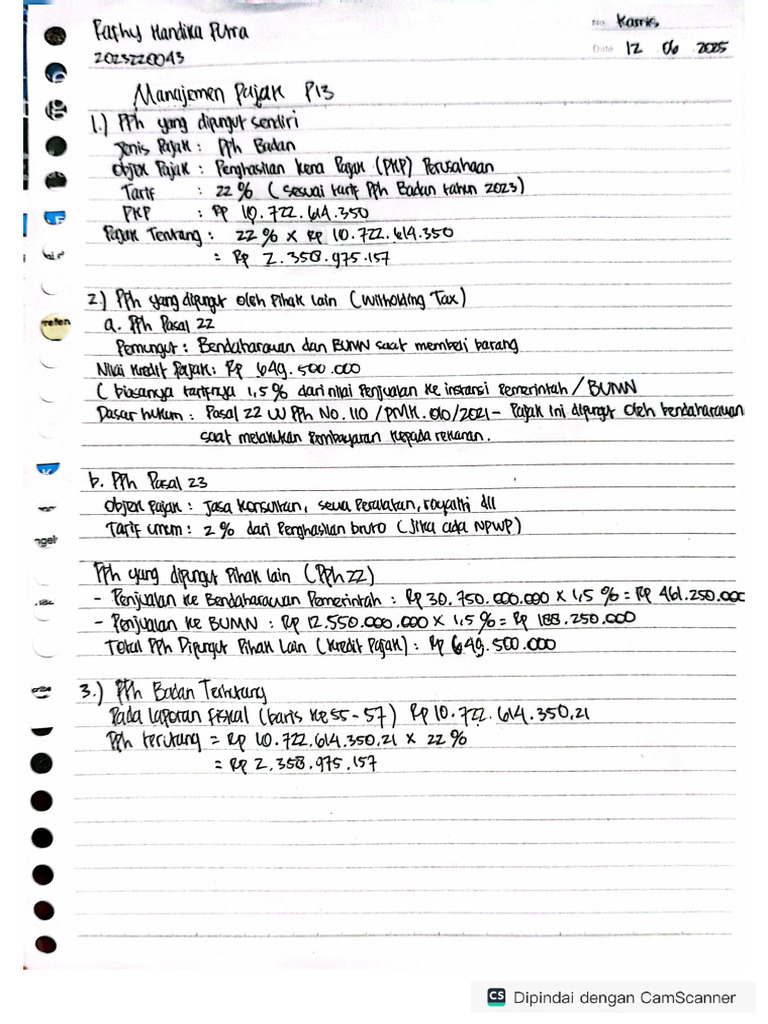 Fathy Handika Putra
No. Kamis
2023220043
Date 12 06 2025
Manajemen Pajak P13
1.) PPh yang dipungut sendiri
Jenis Pajak : PPh Badan
Objek Pajak : Penghasilan Kena Pajak (PKP) Perusahaan
Tarif : 22 % ( Sesuai tarif PPh Badan tahun 2023)
PKP : Rp 10.722.614.350
Pajak Terutang : 22 % x Rp 10.722.614.350
= Rp 2.358.975.157
2.) PPh yang dipungut oleh Pihak lain (Witholding Tax)
a. PPh Pasal 22
Pemungut : Bendaharawan dan BUMN saat membeli barang
Nilai Kredit Pajak: Rp 649.500.000
( biasanya tarifnya 1,5 % dari nilai Penjualan ke instansi Pemerintah / BUMN
Dasar hukum : Pasal 22 UU PPh No. 110 / PMK.010/2021 - Pajak ini dipungut oleh bendaharawan
saat melakukan Pembayaran kepada rekanan.
b. PPh Pasal 23
Objek Pajak : Jasa Konsultan, sewa Peralatan, royalti dll
Tarif umum : 2 % dari Penghasilan bruto (Jika ada NPWP)
PPh yang dipungut Pihak lain (PPh 22)
- Penjualan ke Bendaharawan Pemerintah : Rp 30.750.000.000 x 1,5 % = Rp 461.250.000
- Penjualan ke BUMN : Rp 12.550.000.000 x 1,5 % = Rp 188.250.000
Total PPh Dipungut Pihak Lain (Kredit Pajak) : Rp 649.500.000
3.) PPh Badan Terhutang
Pada laporan fiskal (baris ke 55 - 57) Rp 10.722.614.350,21
PPh terutang = Rp 10.722.614.350,21 x 22 %
= Rp 2.358.975.157
CS Dipindai dengan CamScanner